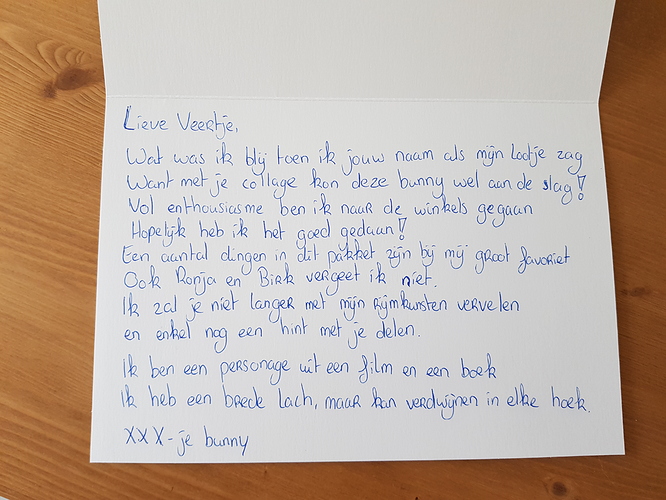 Lieve Veertje,
Wat was ik blij toen ik jouw naam als mijn lootje zag
Want met je collage kon deze bunny wel aan de slag!
Vol enthousiasme ben ik naar de winkels gegaan
Hopelijk heb ik het goed gedaan!
Een aantal dingen in dit pakket zijn bij mij groot favoriet
Ook Ronja en Birk vergeet ik niet.
Ik zal je niet langer met mijn rijmkunsten vervelen
en enkel nog een hint met je delen.
Ik ben een personage uit een film en een boek
Ik heb een brede lach, maar kan verdwijnen in elke hoek.
XXX - je bunny